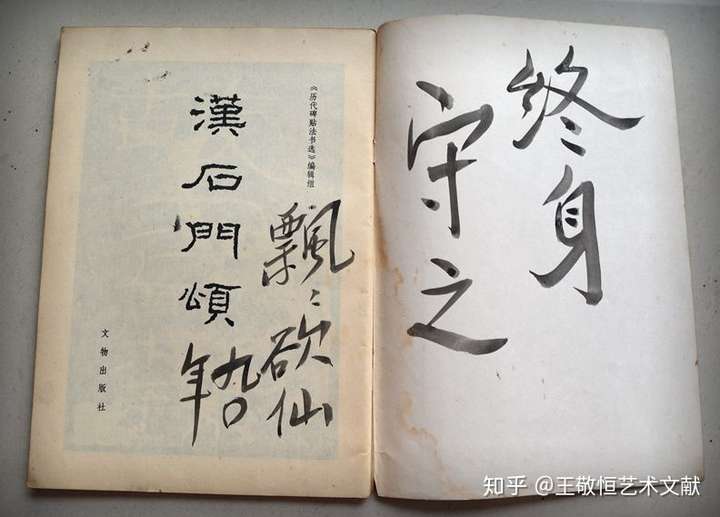 终身
守之
《历代碑帖法书选》编辑组
飄〻欲仙
九〇
年
漢石門頌
文物出版社
知乎 @王敬恒艺术文献